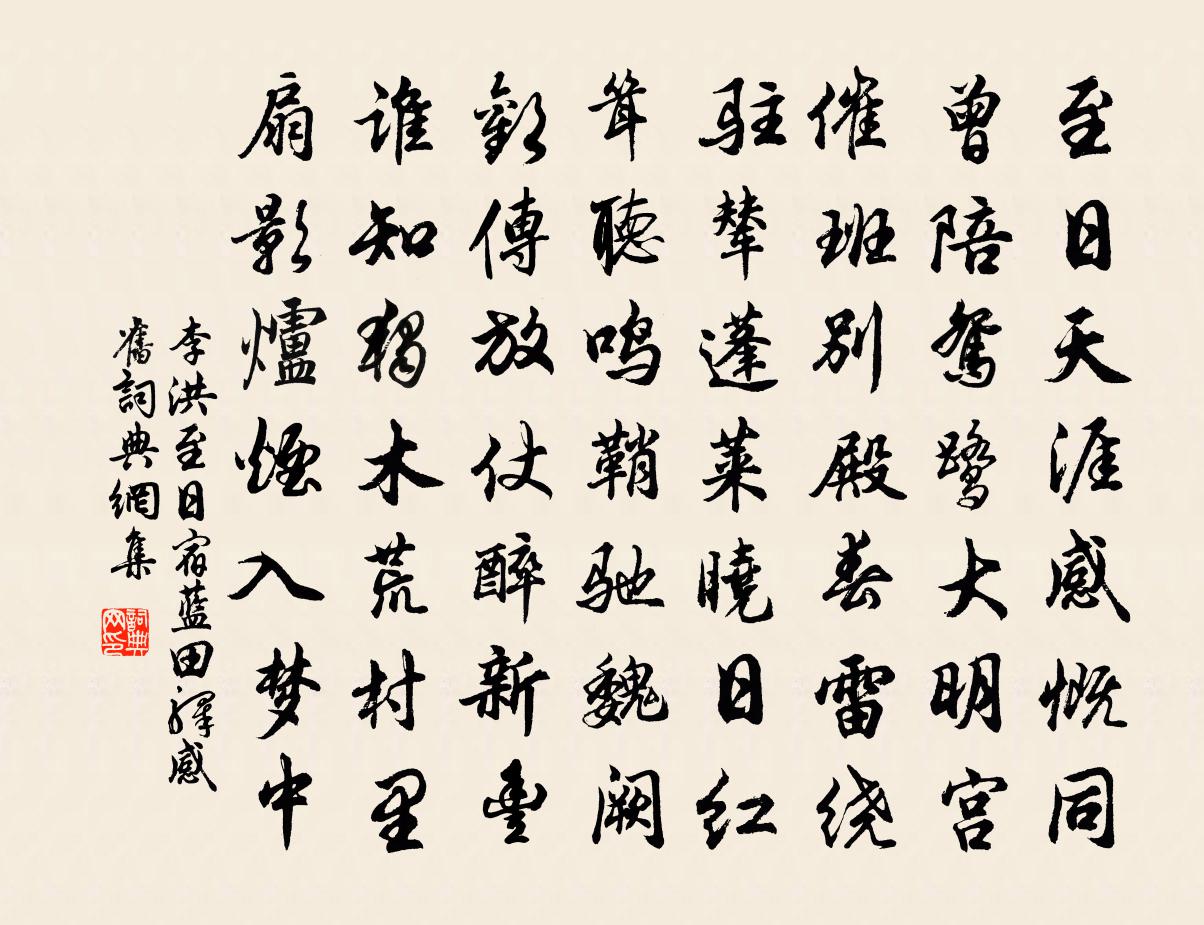 至日天涯感慨同
曾陪鸳鹭大明宫
催班别殿春雷绕
驻輦蓬莱曉日红
耸聽鸣鞘驰魏阙
歡傳放仗醉新豊
谁知獨木荒村里
扇影爐煙入梦中
李洪至日宿藍田驛感
舊詞典網集
詞典
网印